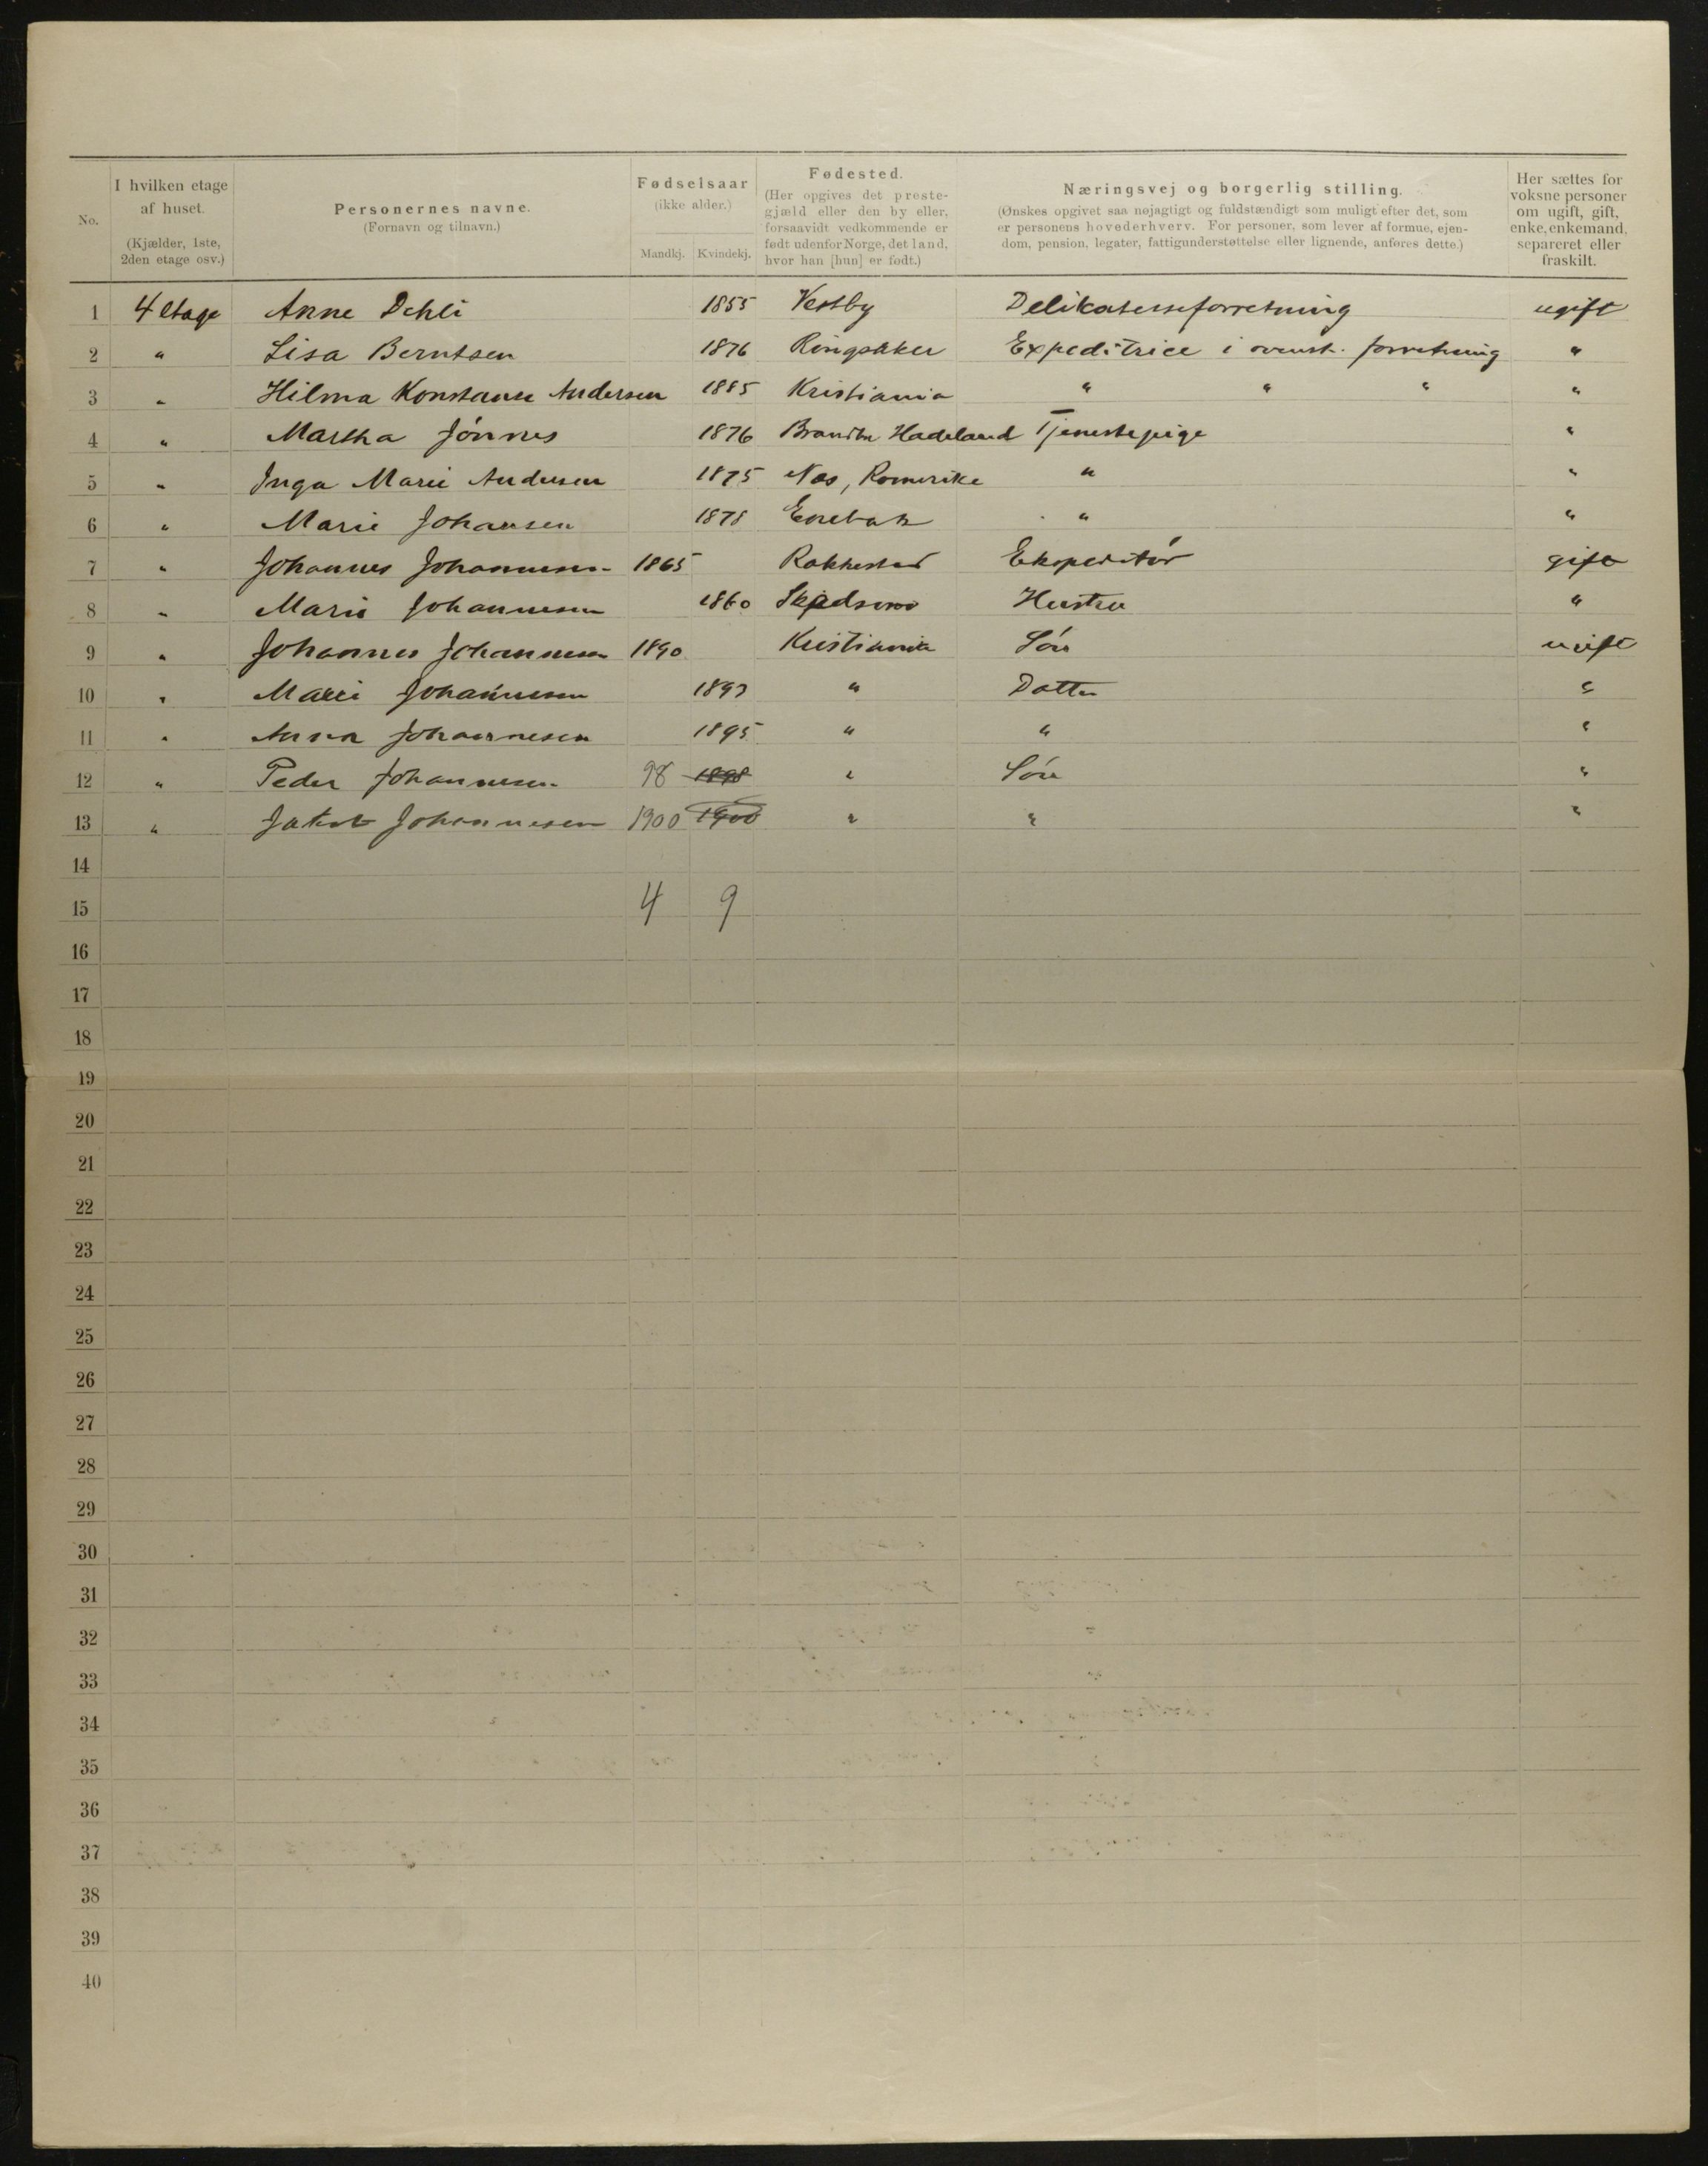 No.
I hvilken etage af huset. (Kjælder, 1ste, 2den etage osv.)
Personernes navne. (Fornavn og tilnavn.)
Fødselsaar (ikke alder.)
Mandkj. Kvindekj.
Fødested. (Her opgives det prestegjæld eller den by eller, forsaavidt vedkommende er født udenfor Norge, det land, hvor han [hun] er født.)
Næringsvej og borgerlig stilling. (Ønskes opgivet saa nøjagtigt og fuldstændigt som muligt efter det, som er personens hovederhverv. For personer, som lever af formue, ejendom, pension, legater, fattigunderstøttelse eller lignende, anføres dette.)
Her sættes for voksne personer om ugift, gift, enke, enkemand, separeret eller fraskilt.
1 4 etage Anne Dehli 1855 Vestby Delikatesseforretning ugift
2 " Lisa Berntsen 1876 Ringsaker Expeditrice i ovenst. forretning "
3 " Hilma Konstanse Andersen 1885 Kristiania " " " "
4 " Martha Jónnes 1876 Brandbu Hadeland Tjenestepige "
5 " Inga Marie Andersen 1875 Nes, Romerike " "
6 " Marie Johansen 1878 Enebak " "
7 " Johannes Johannesen 1865 Rakkestad Ekspeditør gift
8 " Marie Johannesen 1860 Skedsmo Hustru "
9 " Johannes Johannesen 1890 Kristiania Søn ugift
10 " Marie Johannesen 1893 " Datter "
11 " Anna Johannesen 1895 " " "
12 " Peder Johannesen 98 1898 " Søn "
13 " Jakob Johannesen 1900 1900 " " "
14
15 4 9
16
17
18
19
20
21
22
23
24
25
26
27
28
29
30
31
32
33
34
35
36
37
38
39
40